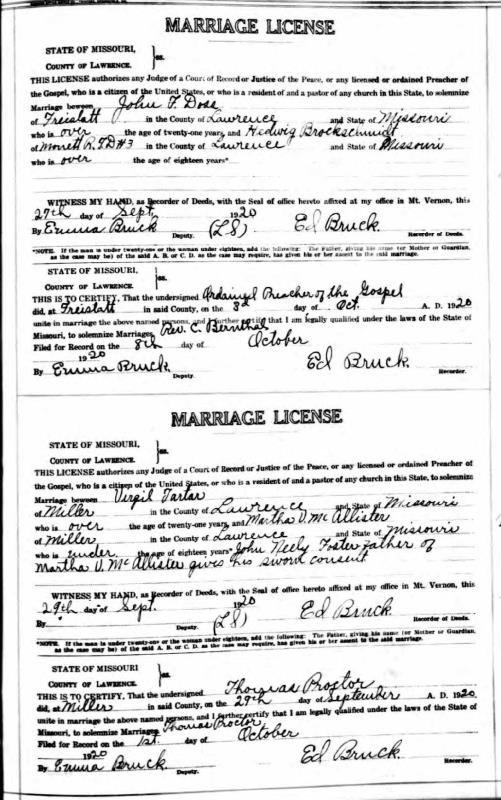 MARRIAGE LICENSE
STATE OF MISSOURI,
COUNTY OF LAWRENCE. } ss.
THIS LICENSE authorizes any Judge of a Court of Record or Justice of the Peace, or any licensed or ordained Preacher of
the Gospel, who is a citizen of the United States, or who is a resident of and a pastor of any church in this State, to solemnize
Marriage between John F. Doss
of Freistatt in the County of Lawrence and State of Missouri
who is over the age of twenty-one years, and Hedwig Brockschmidt
of Monett R.F.D #3 in the County of Lawrence and State of Missouri
who is over the age of eighteen years*
WITNESS MY HAND, as Recorder of Deeds, with the Seal of office hereto affixed at my office in Mt. Vernon, this
27th day of Sept. 1920
By Emma Bruck Deputy. (LS) Ed Bruck Recorder of Deeds.
*NOTE. If the man is under twenty-one or the woman under eighteen, add the following: The Father, giving his name (or Mother or Guardian,
as the case may be) of the said A. B. or C. D. as the case may require, has given his or her assent to the said marriage.
STATE OF MISSOURI.
COUNTY OF LAWRENCE. } ss.
THIS IS TO CERTIFY, That the undersigned Ordained Preacher of the Gospel
did, at Freistatt in said County, on the 3d day of Oct. A. D. 1920
unite in marriage the above named persons, and I further certify that I am legally qualified under the laws of the State of
Missouri, to solemnize Marriages. Rev. C. Bernthal
Filed for Record on the 8th day of October
1920
By Emma Bruck. Deputy. Ed Bruck. Recorder.
MARRIAGE LICENSE
STATE OF MISSOURI,
COUNTY OF LAWRENCE. } ss.
THIS LICENSE authorizes any Judge of a Court of Record or Justice of the Peace, or any licensed or ordained Preacher of
the Gospel, who is a citizen of the United States, or who is a resident of and a pastor of any church in this State, to solemnize
Marriage between Virgil Tartar
of Miller in the County of Lawrence and State of Missouri
who is over the age of twenty-one years, and Martha V. McAllister
of Miller in the County of Lawrence and State of Missouri
who is under the age of eighteen years* John Neely Foster father of
Martha V. McAllister gives his sworn consent
WITNESS MY HAND, as Recorder of Deeds, with the Seal of office hereto affixed at my office in Mt. Vernon, this
29th day of Sept. 1920
By Deputy. (LS) Ed Bruck Recorder of Deeds.
*NOTE. If the man is under twenty-one or the woman under eighteen, add the following: The Father, giving his name (or Mother or Guardian,
as the case may be) of the said A. B. or C. D. as the case may require, has given his or her assent to the said marriage.
STATE OF MISSOURI
COUNTY OF LAWRENCE. } ss.
THIS IS TO CERTIFY, That the undersigned Thomas Proctor
did, at Miller in said County, on the 29th day of September A. D. 1920.
unite in marriage the above named persons, and I further certify that I am legally qualified under the laws of the State of
Missouri, to solemnize Marriages. Thomas Proctor,
Filed for Record on the 1st. day of October
1920
By Emma Bruck. Deputy. Ed Bruck. Recorder.